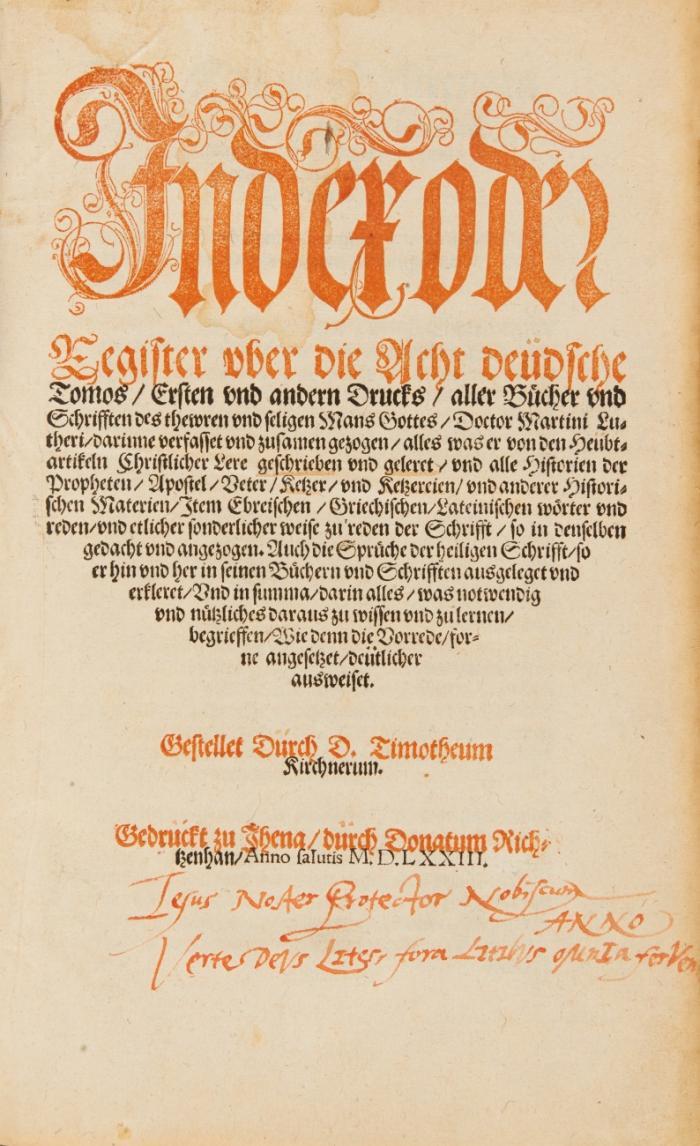 Index oder
Register vber die Acht deüdsche
Tomos / Ersten vnd andern Drucks / aller Bücher vnd
Schrifften des thewren vnd seligen Mans Gottes / Doctor Martini Lu-
theri/darinne verfasset vnd zusamen gezogen / alles was er von den Heubt-
artikeln Christlicher Lere geschrieben vnd geleret / vnd alle Historien der
Propheten / Apostel / Veter / Ketzer / vnd Ketzereien/ vnd anderer Histori-
schen Materien/Item Ebreischen / Griechischen/Lateinischen wörter vnd
reden/vnd etlicher sonderlicher weise zu reden der Schrifft / so in denselben
gedacht vnd angezogen. Auch die Sprüche der heiligen Schrifft/so
er hin vnd her in seinen Büchern vnd Schrifften ausgeleget vnd
erkleret/Vnd in summa/darin alles / was notwendig
vnd nützliches daraus zu wissen vnd zu lernen/
begrieffen/Wie denn die Vorrede/for-
ne angesetzet/deütlicher
ausweiset.
Gestellet Dürch D. Timotheum
Kirchnerum.
Gedrückt zu Jhena / dürch Donatum Rich-
tzenhan/Anno salutis M. D. LXXIII.
Iesus Noster Protector Nobiscum
ANNO
Verte Deus Lites, fora Litibus omnia